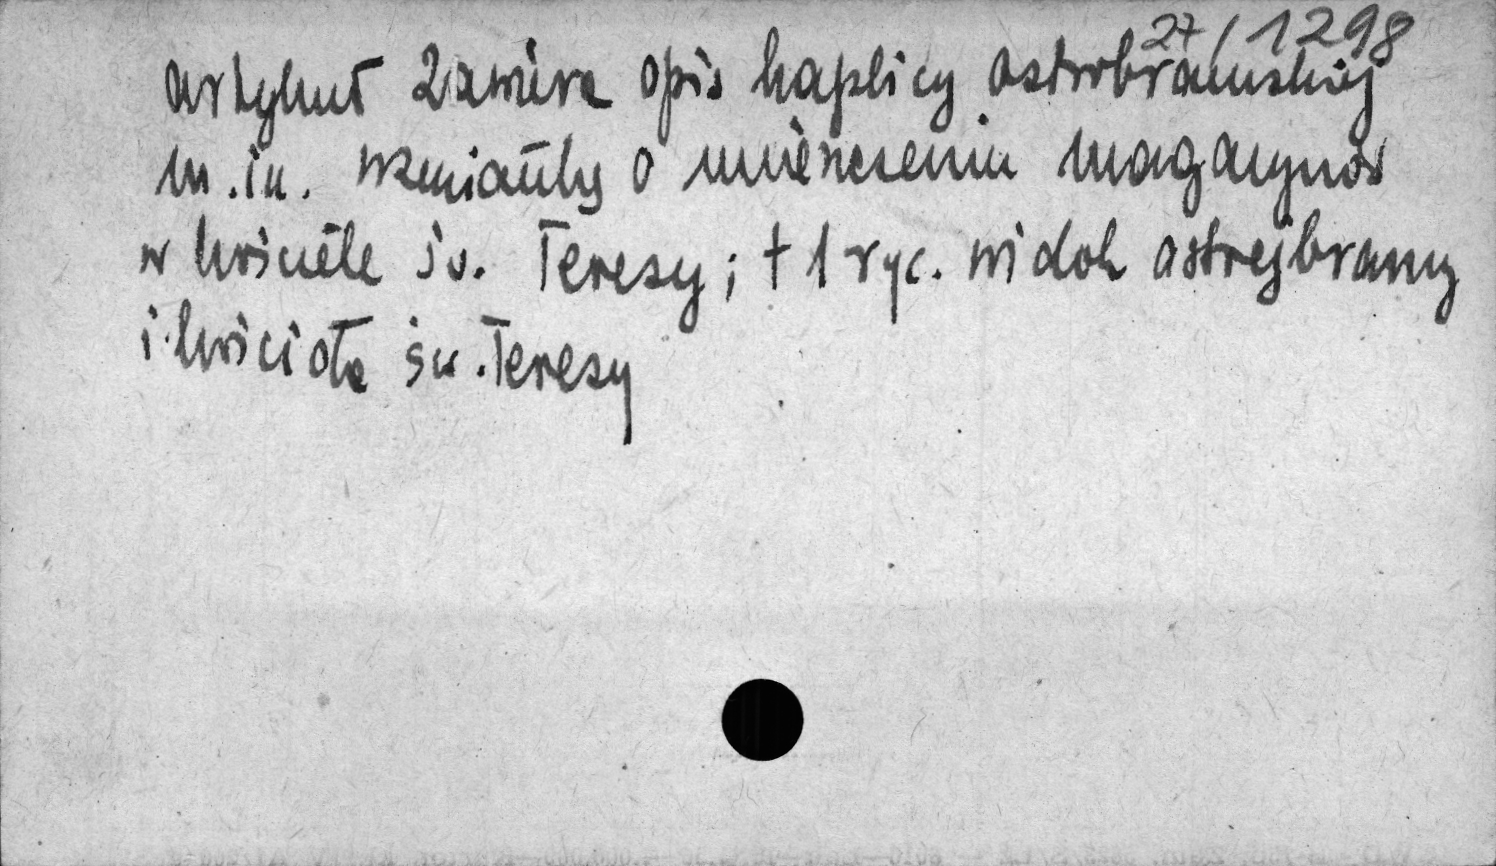 27/1298
artykuł zawiera opis kaplicy ostrobramskiej
m.in. wzmianky o umieszczeniu magazynów
w kościele św. Teresy; + 1 ryc. widok ostrej bramy
i kościoła św. Teresy